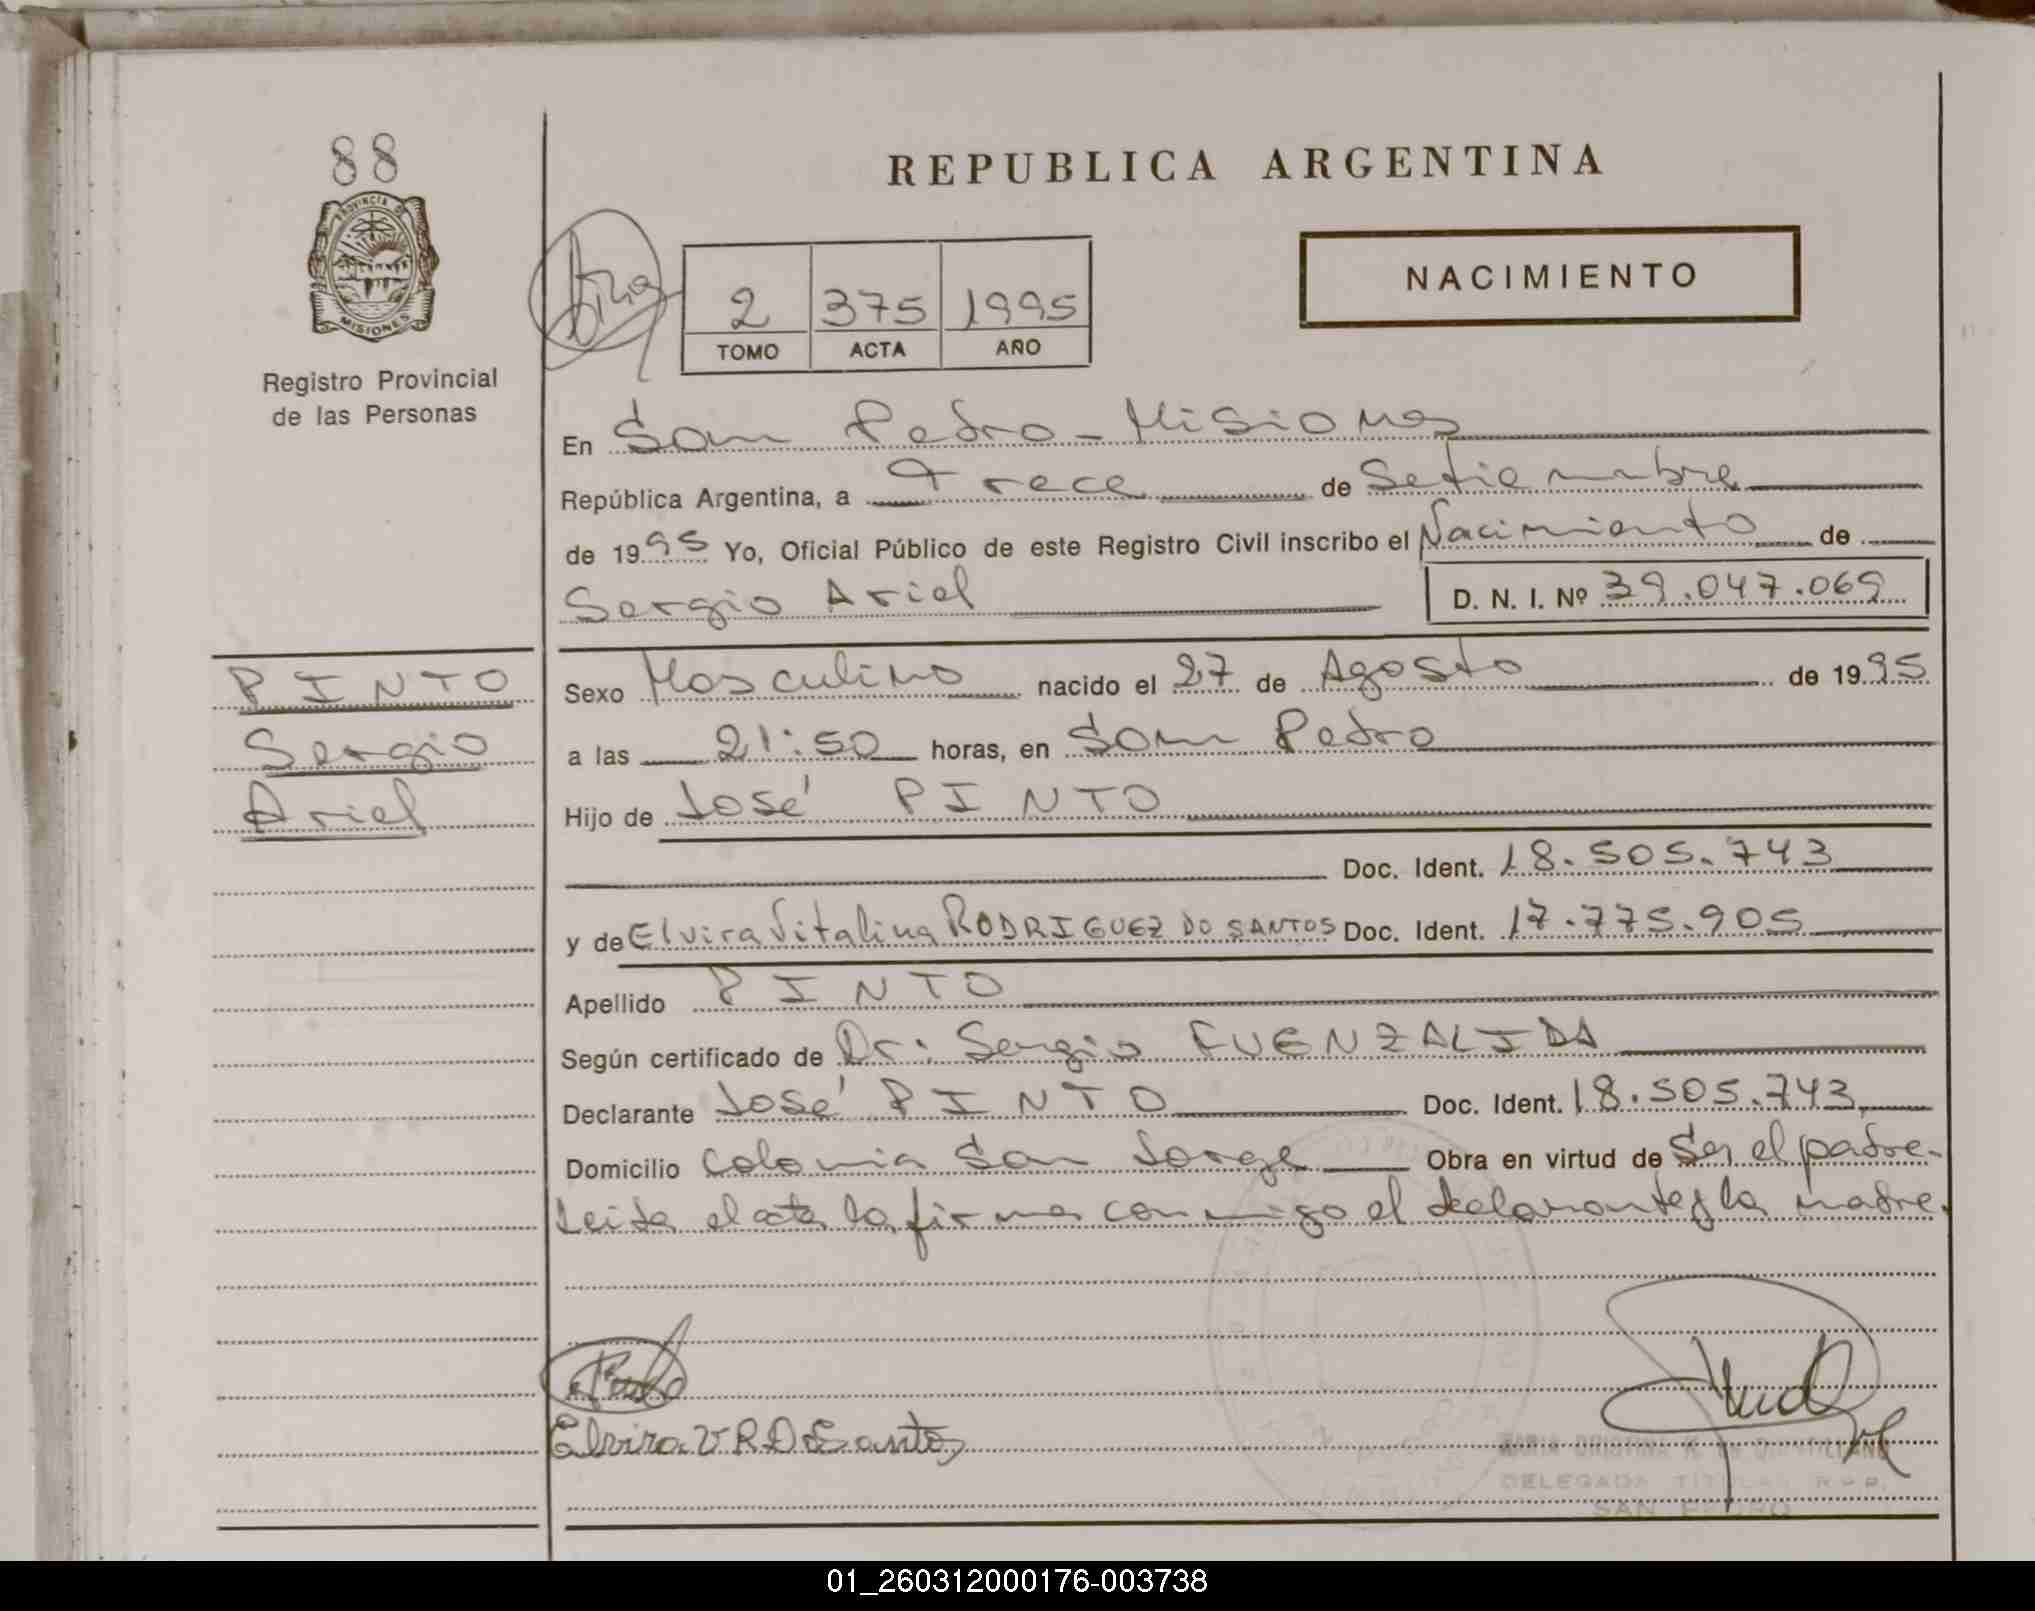 88
REPUBLICA ARGENTINA
PROVINCIA D
MISIONES
Registro Provincial
de las Personas
NACIMIENTO
2 375 1995
TOMO ACTA AÑO
En San Pedro - Misiones
República Argentina, a Trece de Setiembre
de 1995 Yo, Oficial Público de este Registro Civil inscribo el Nacimiento de
Sergio Ariel D. N. I. Nº 39.047.069
PINTO
Sergio
Ariel
Sexo Masculino nacido el 27 de Agosto de 1995
a las 21:50 horas, en San Pedro
Hijo de José PINTO
Doc. Ident. 18.505.743
y de Elvira Vitalina RODRIGUEZ DO SANTOS Doc. Ident. 17.775.905
Apellido PINTO
Según certificado de Dr: Sergio FUENZALIDA
Declarante José PINTO Doc. Ident. 18.505.743
Domicilio Colonia San Jorge Obra en virtud de Ser el padre.
Leida el acta la firma conmigo el declarante y la madre.
Elvira V R D Santos
MARIA CRISTINA
DELEGADA TITULAR R P P.
SAN PEDRO
01_260312000176-003738